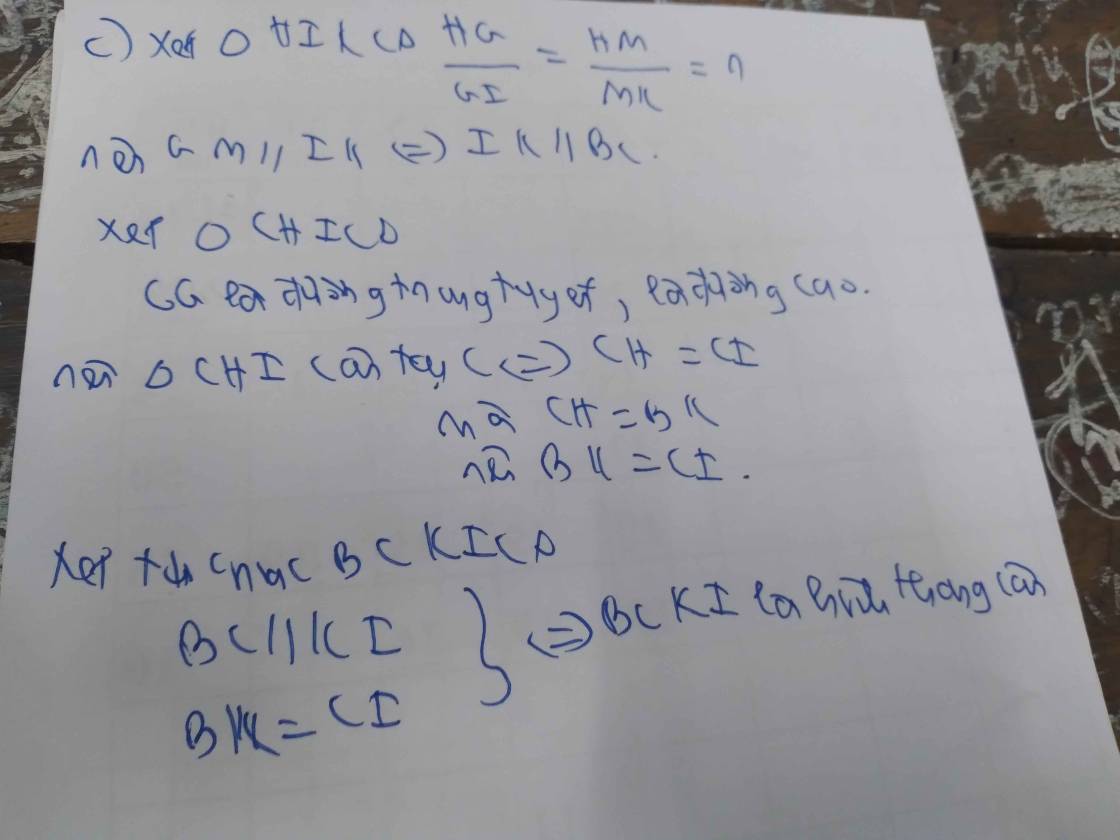 c) Xét Δ HIK có HG/GI = HM/MK = 1
nên GM // IK <=> IK // BC.
Xét Δ CHI có
CG là đường trung tuyết, là đường cao.
nên Δ CHI cân tại C <=> CH = CI
mà CH = BK
nên BK = CI.
Xét tứ chác BCKI có
BC // KI } <=> BCKI là hình thang cân
BK = CI